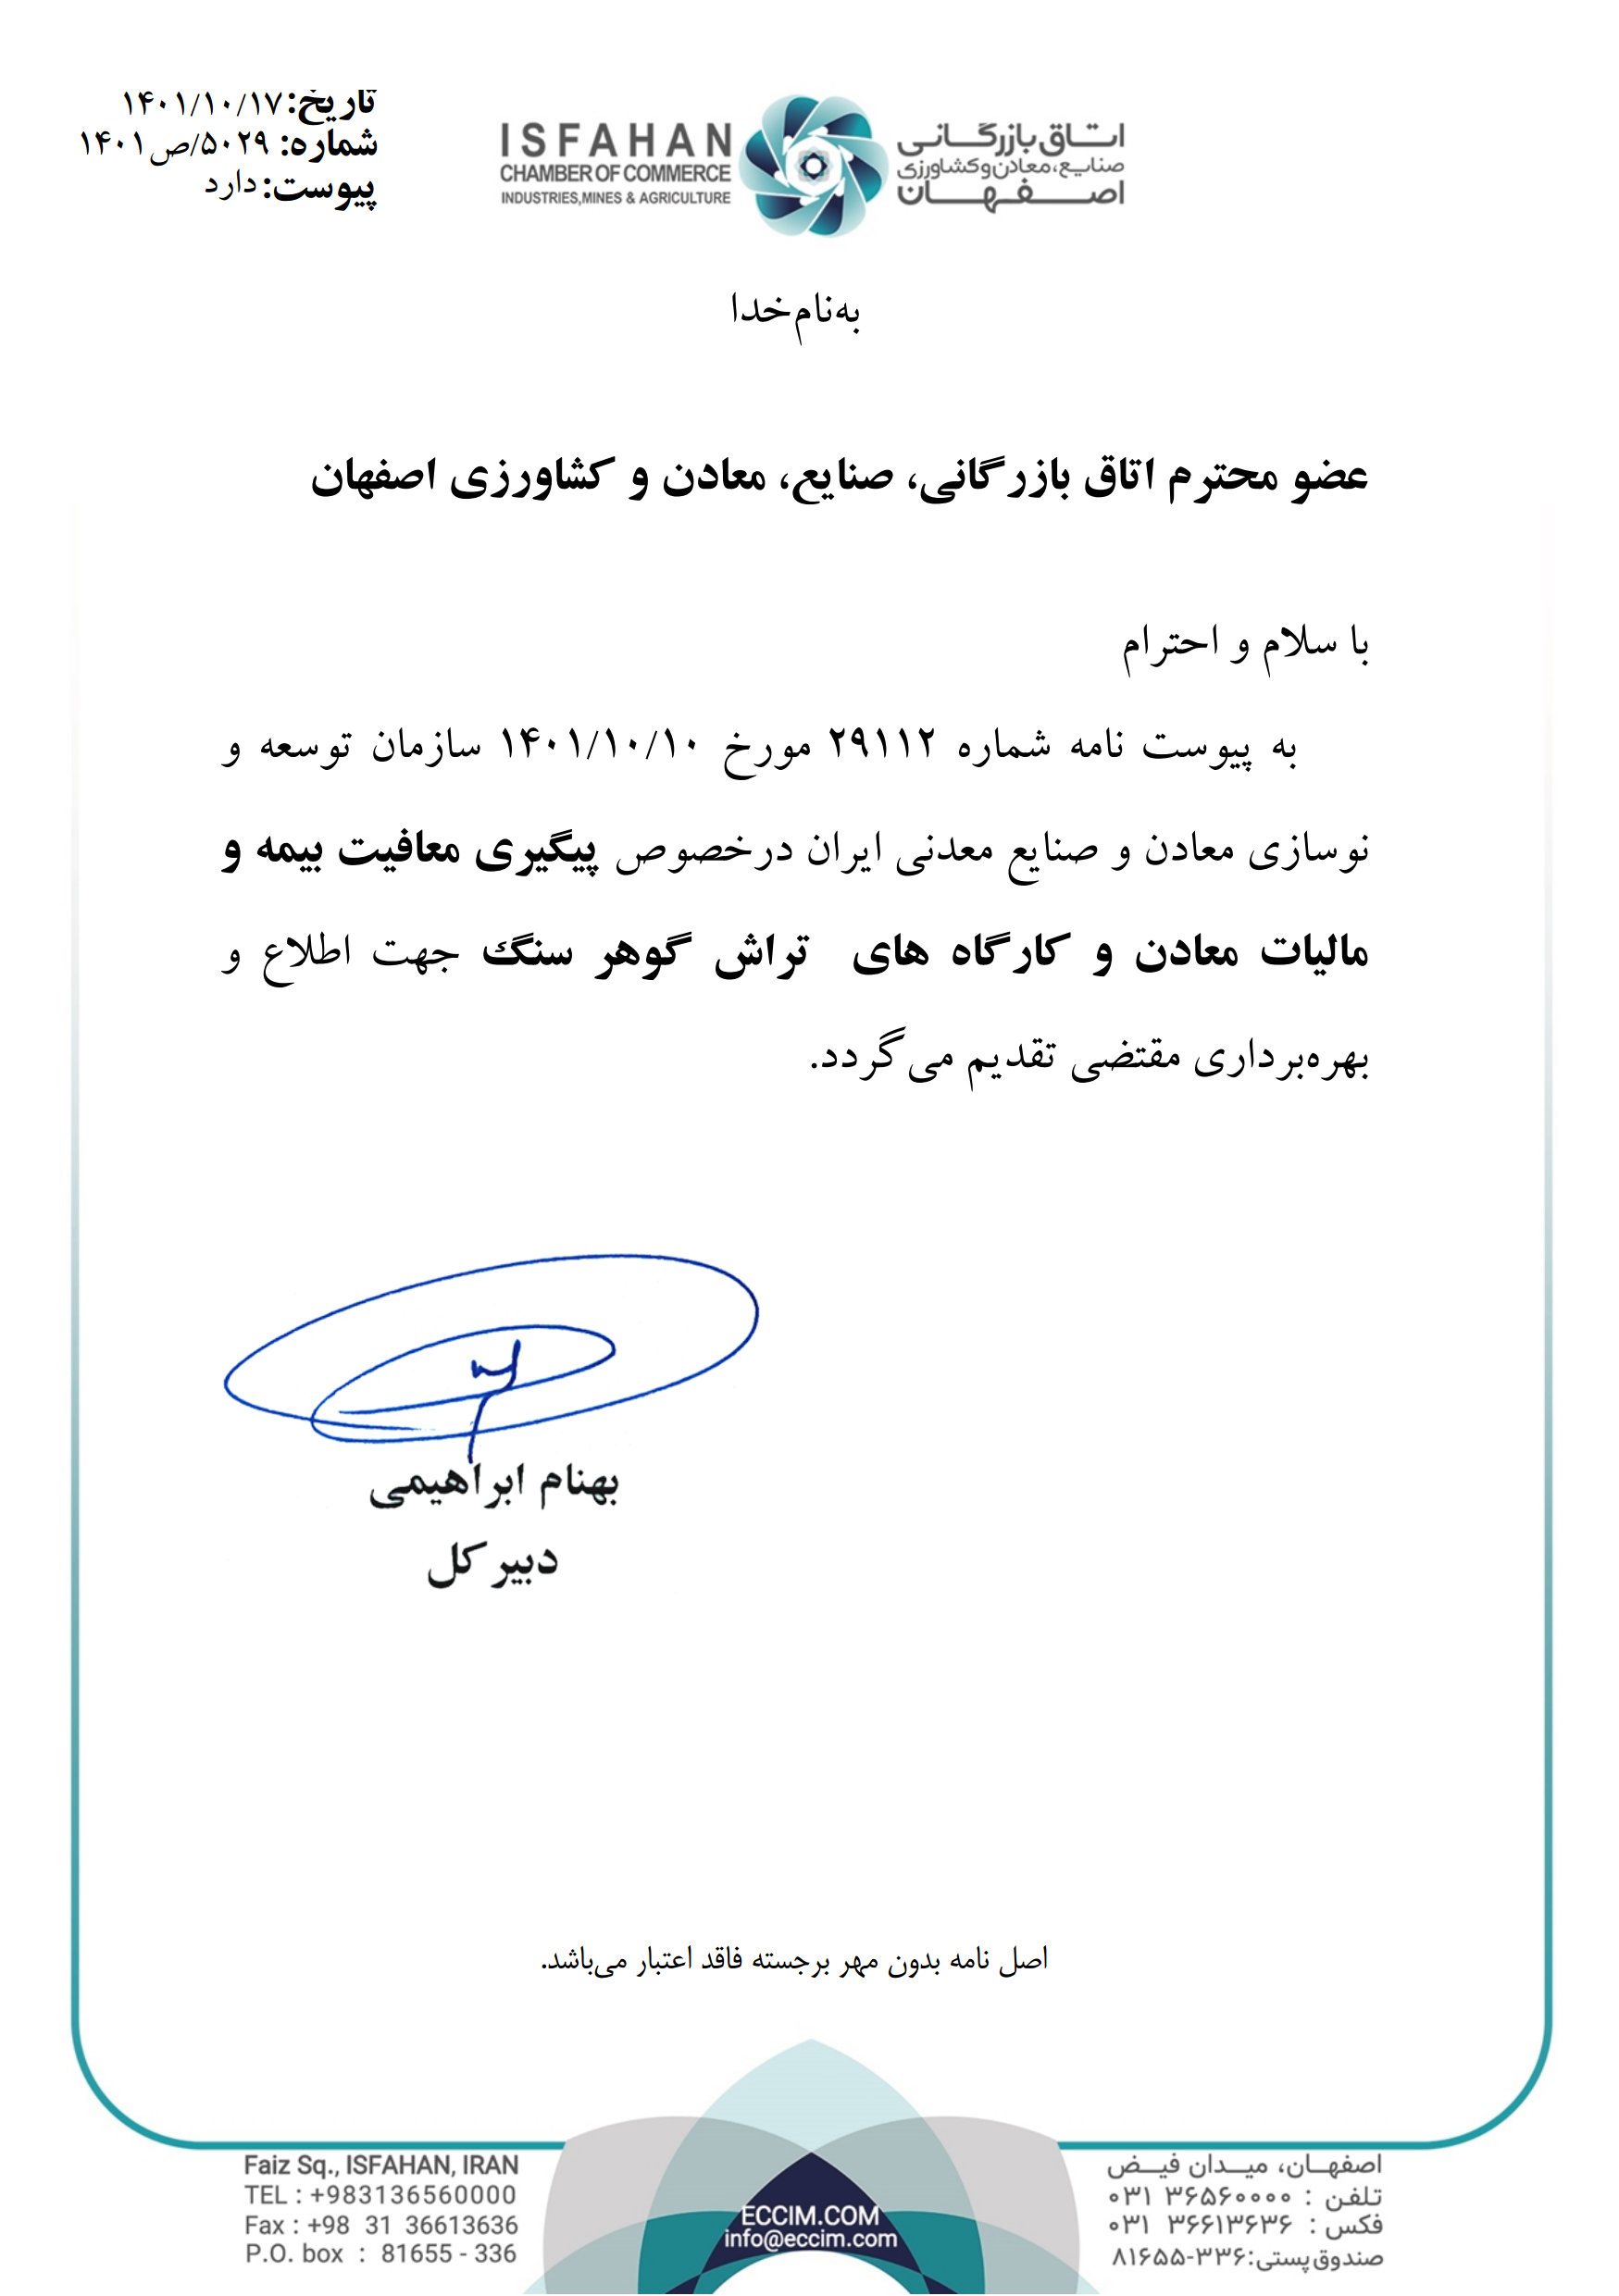 تاریخ: ۱۴۰۱/۱۰/۱۷
شماره: ۵۰۲۹/ص۱۴۰۱
پیوست: دارد
ISFAHAN
CHAMBER OF COMMERCE
INDUSTRIES,MINES & AGRICULTURE
اتاق بازرگانی
صنایع، معادن و کشاورزی
اصفهان
به‌نام‌خدا
عضو محترم اتاق بازرگانی، صنایع، معادن و کشاورزی اصفهان
با سلام و احترام
به پیوست نامه شماره ۲۹۱۱۲ مورخ ۱۴۰۱/۱۰/۱۰ سازمان توسعه و
نوسازی معادن و صنایع معدنی ایران درخصوص پیگیری معافیت بیمه و
مالیات معادن و کارگاه های تراش گوهر سنگ جهت اطلاع و
بهره‌برداری مقتضی تقدیم می‌گردد.
بهنام ابراهیمی
دبیرکل
اصل نامه بدون مهر برجسته فاقد اعتبار می‌باشد.
Faiz Sq., ISFAHAN, IRAN
TEL : +983136560000
Fax : +98 31 36613636
P.O. box : 81655 - 336
ECCIM.COM
info@eccim.com
اصفهــان، میــدان فیــض
تلفن : ۳۶۵۶۰۰۰۰ ۰۳۱
فکس : ۳۶۶۱۳۶۳۶ ۰۳۱
صندوق پستی: ۳۳۶-۸۱۶۵۵